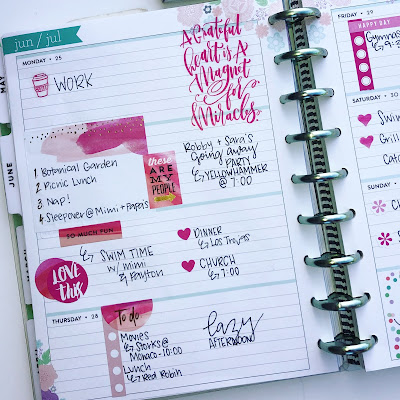 jun / jul
MONDAY • 25
WORK
A Grateful
Heart is A
Magnet
for
Miracles.
MAY
JUNE
1 Botanical Garden
2 Picnic Lunch
3 Nap!
4 Sleepover @ Mimi + Papa's
these
ARE
MY
PEOPLE
Robby + Sara's
Going away
PARTY
YELLOWHAMMER
@ 7:00
SO MUCH FUN
LOVE
this
SWIM TIME
w/ mimi
& Payton
DINNER
Los Trojas
CHURCH
7:00
THURSDAY • 28
To do
Movies
Storks @
Monaco - 10:00
Lunch
Red Robin
lazy
AFTERNOON
FRIDAY • 29
HAPPY DAY
Gymnas
SATURDAY • 30
Swim
Grill
Cat
SUNDAY •
C